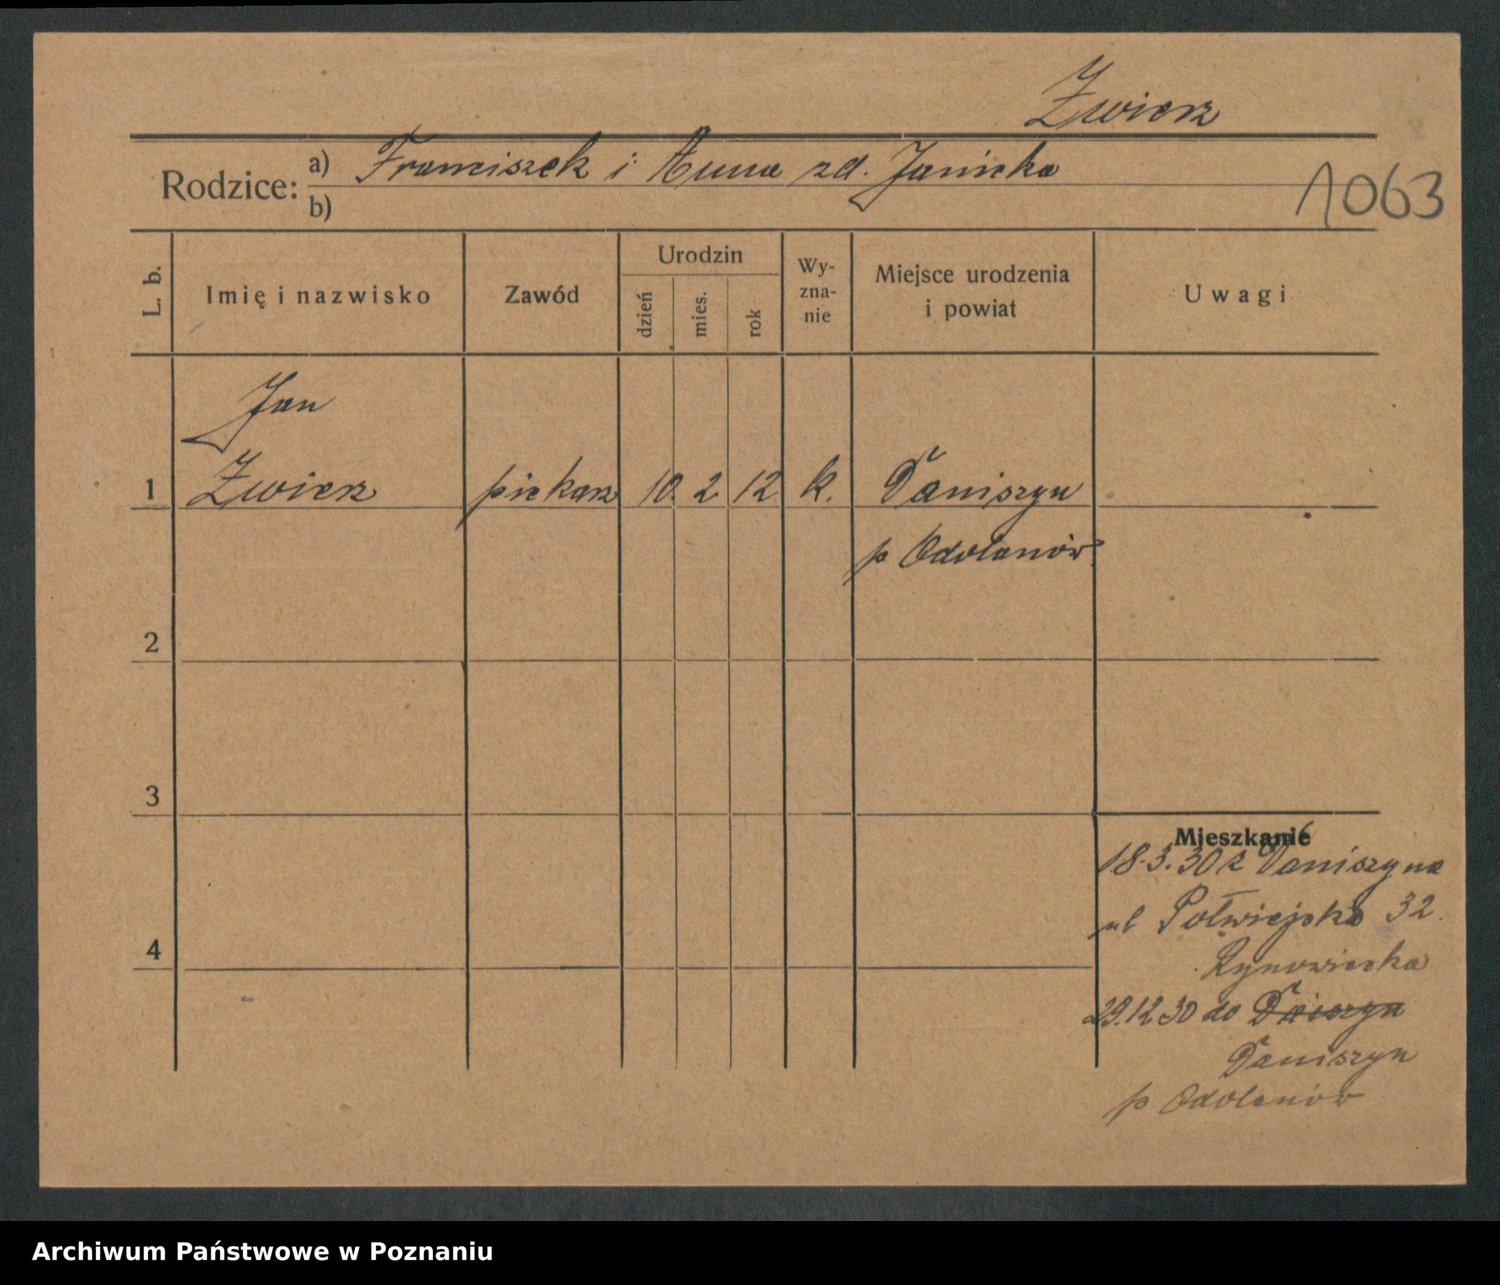 Zwierz
Rodzice: a) Franciszek i Anna zd. Janicka
b)
1063
L. b.
Imię i nazwisko
Zawód
Urodzin
dzień
mies.
rok
Wy-
zna-
nie
Miejsce urodzenia
i powiat
Uwagi
Jan
1 Zwierz piekarz 10. 2 12 k. Daniszyn
p Odolanów
2
3
Mieszkanie
18.3.30 z Daniszyna
ul Półwiejska 32.
4
29.12 30 do Daiszyn
Daniszyn
p Odolanów
Archiwum Państwowe w Poznaniu